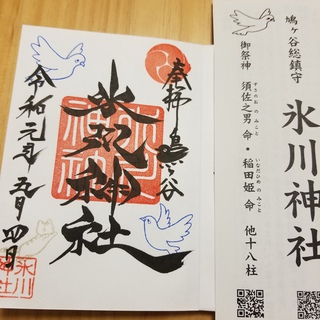 鳩ヶ谷総鎮守
氷川神社
御祭神 須佐之男命・稲田姫命 他十八柱
すさのおのみこと
いなだひめのみこと
奉拝 鳩ヶ谷
氷川神社
令和元年五月四日
氷川神社